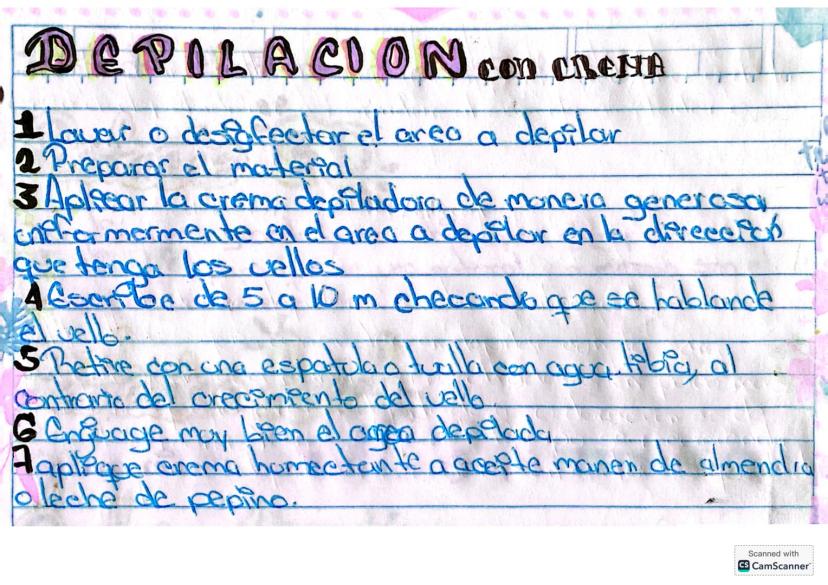 DEPILACION con CREMA
1 Lavar o desigfectar el area a depilar
2 Preparar el material
3 Aplicar la crema depiladora de manera generosa
uniformermente en el area a depilar en la direección
que tenga los vellos
4 Escribe de 5 a 10 m checando que se hablande
el vello.
5 Retire con una espatula o tualla con agua tibia, al
contrario del crecimiento del vello.
6 Enguage muy bien el area depilada
7 aplique crema humectante a aceite manen de almendra
o leche de pepino.
Scanned with
CS CamScanner